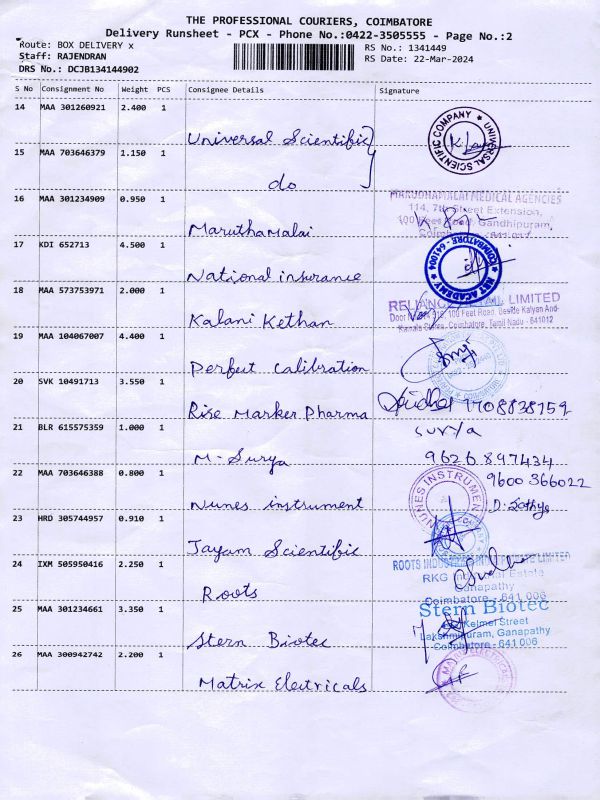 THE PROFESSIONAL COURIERS, COIMBATORE
Delivery Runsheet - PCX - Phone No.:0422-3505555 - Page No.:2
Route: BOX DELIVERY x
RS No.: 1341449
Staff: RAJENDRAN
RS Date: 22-Mar-2024
DRS No.: DCJB134144902
S No Consignment No Weight PCS Consignee Details Signature
14 MAA 301260921 2.400 1
Universal Scientific
UNIVERSAL SCIENTIFIC COMPANY
15 MAA 703646379 1.150 1
do
16 MAA 301234909 0.950 1
Maruthamalai
MEDICAL AGENCIES
114, 7th Street Extension,
100 Feet Road, Gandhipuram,
17 KDI 652713 4.500 1
National insurance
NET ACADEMY COIMBATORE - 641004
18 MAA 573753971 2.000 1
Kalani Kethan
RELIANCE RETAIL LIMITED
100 Feet Road, Beside Kalyan And-
Coimbatore, Tamil Nadu - 641012
19 MAA 104067007 4.400 1
Perfect Calibration
20 SVK 10491713 3.550 1
Rise Marker Pharma
7708838159
21 BLR 615575359 1.000 1
M. Surya
surya
9626897434
22 MAA 703646388 0.800 1
9600366022
Nunes instrument
NUNES INSTRUMENT
23 HRD 305744957 0.910 1
Jayam Scientific
24 IXM 505950416 2.250 1
Roots
ROOTS INDUSTRIES LIMITED
RKG Industrial Estate
Ganapathy
Coimbatore - 641 006
25 MAA 301234661 3.350 1
Stern Biotec
Stern Biotec
Kelmei Street
Lakshmipuram, Ganapathy
Coimbatore - 641 006
26 MAA 300942742 2.200 1
Matrix Electricals